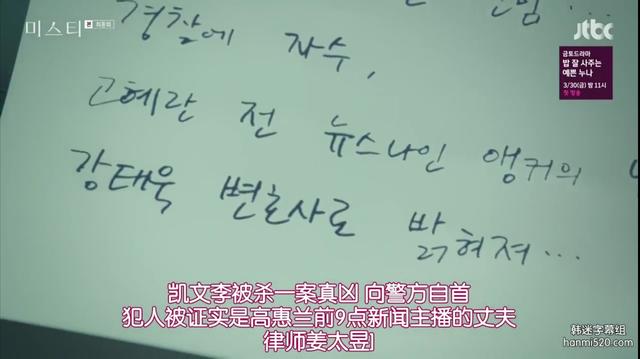 미스티
최종회
jtbc
금토드라마
밥 잘 사주는
예쁜 누나
3/30(금) 밤 11시
첫 방송
경찰에 자수,
고혜란 전 뉴스나인 앵커의
강태욱 변호사로 밝혀져...
凯文李被杀一案真凶 向警方自首
犯人被证实是高惠兰前9点新闻主播的丈夫
律师姜太昱
韩迷字幕组
hanmi520.com